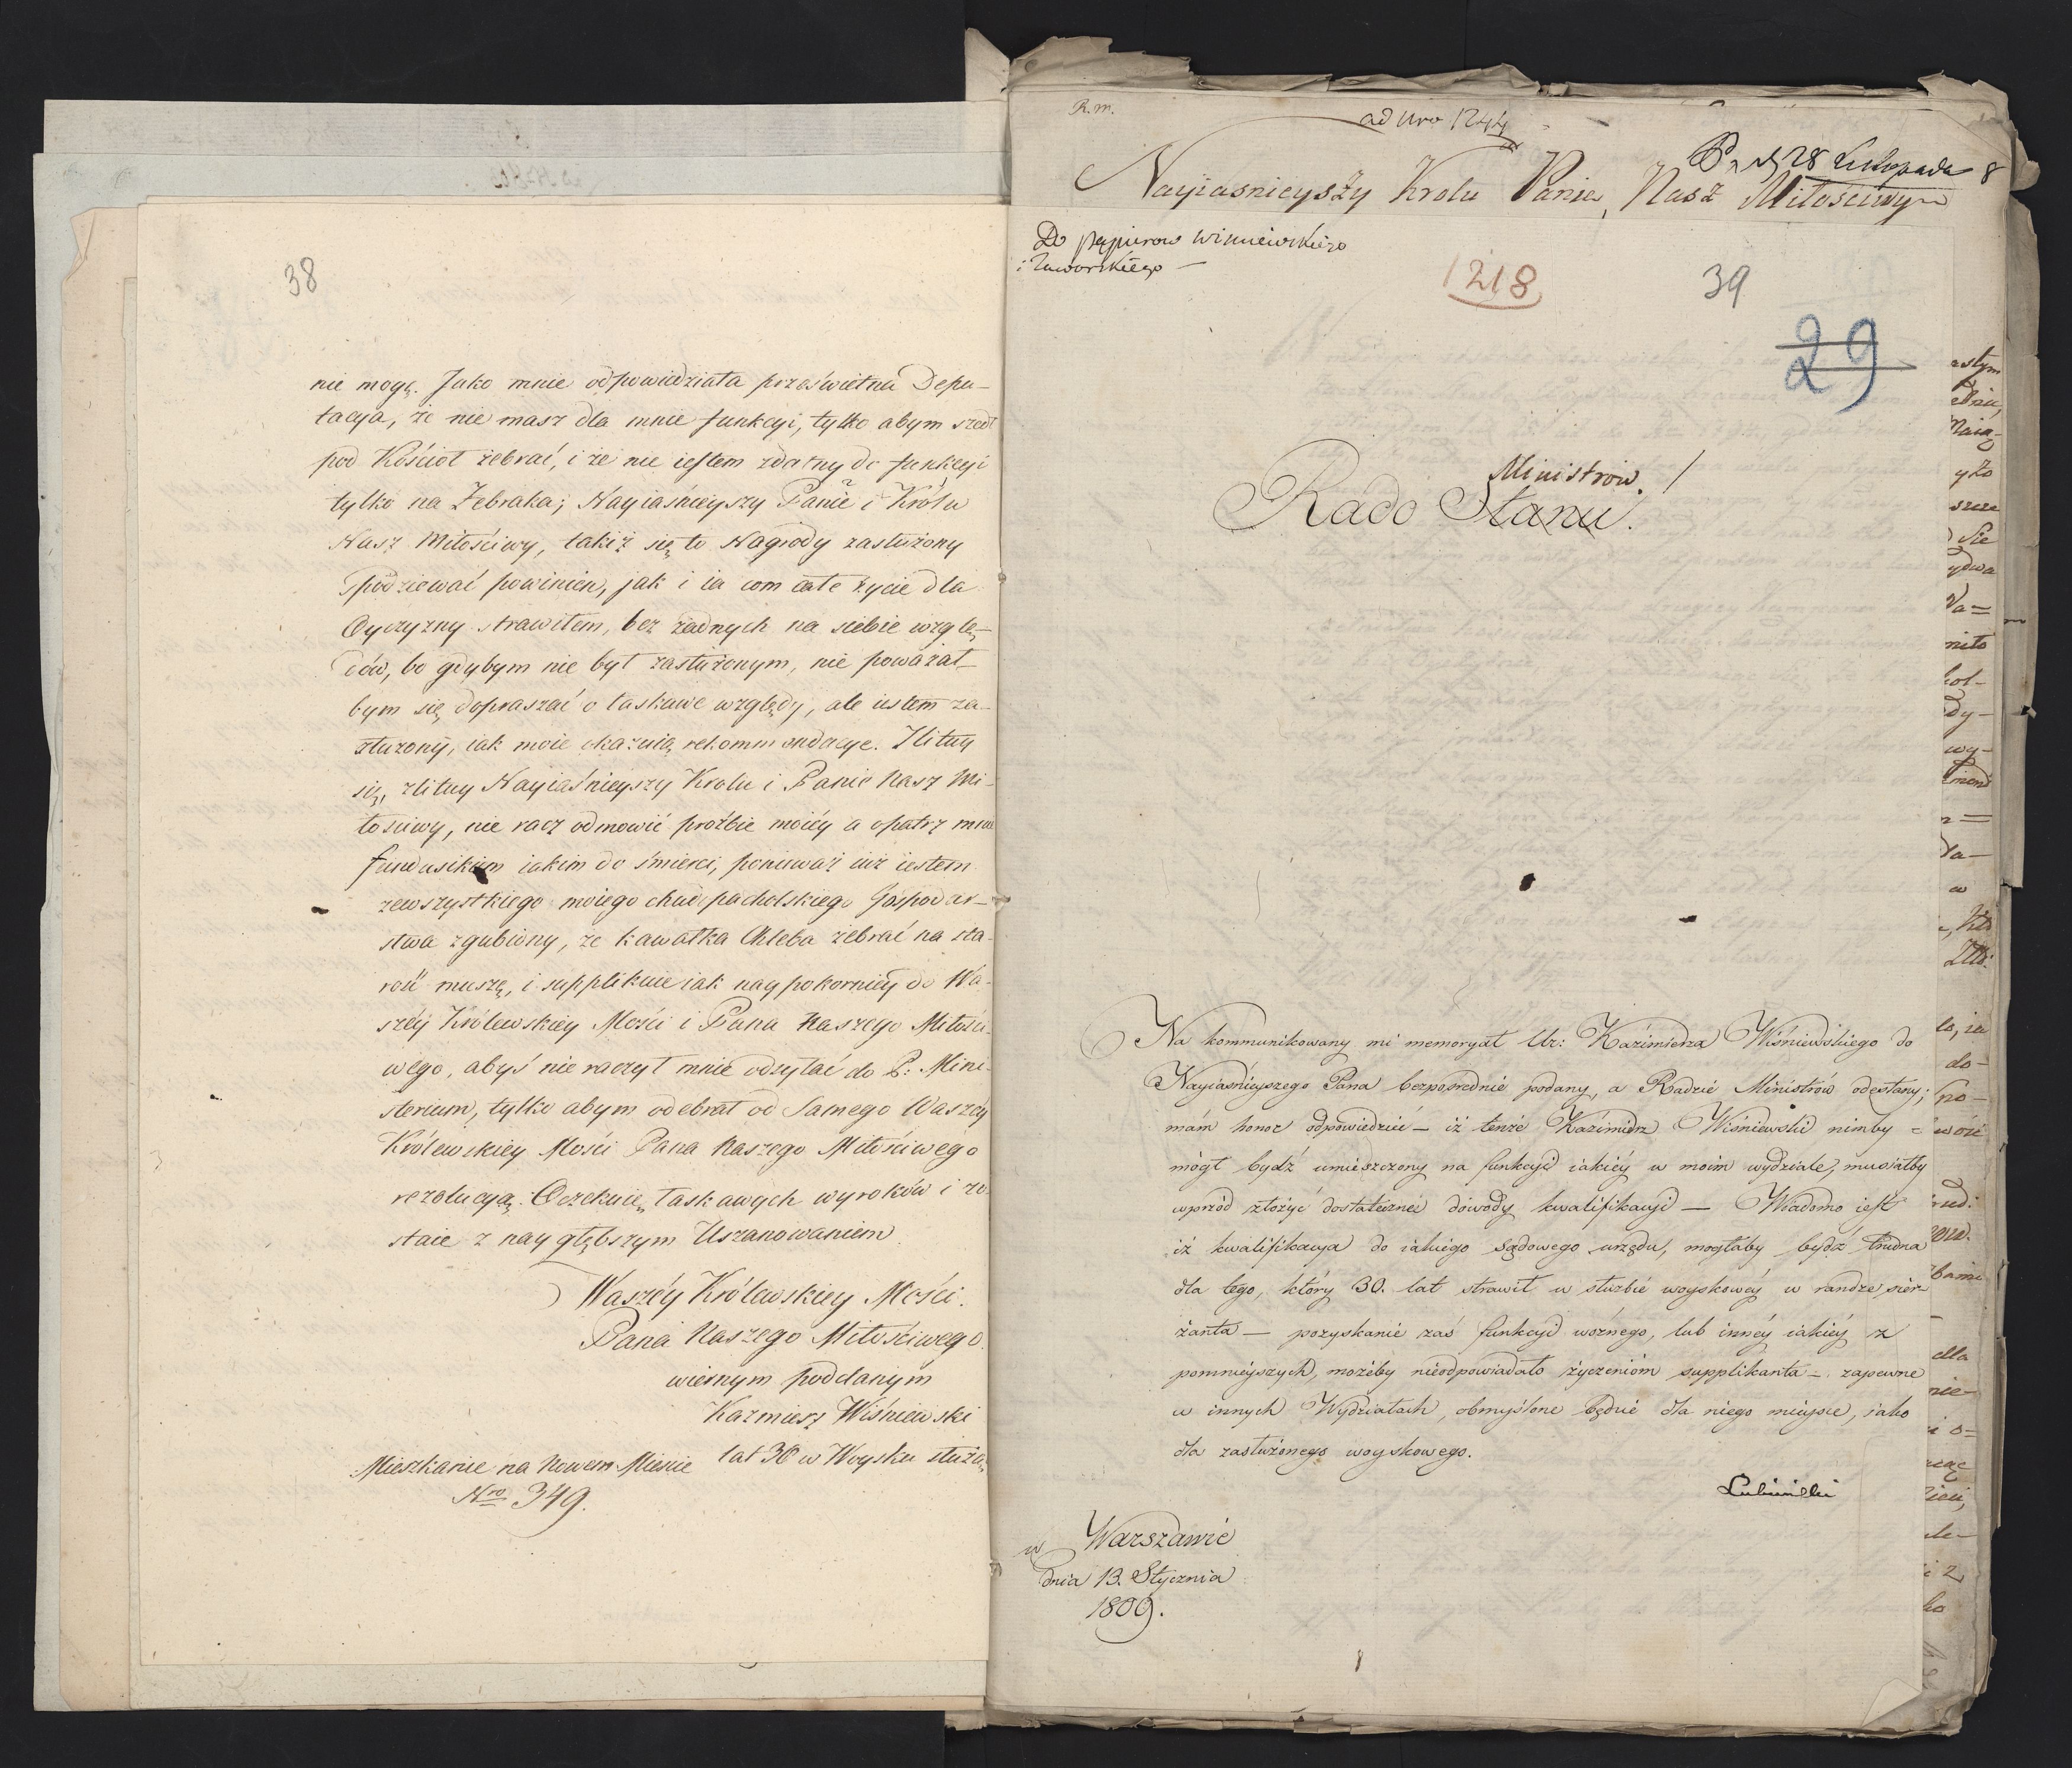 38
nie mogę. Jako mnie odpowiedziała prześwietna Depu-
tacyja, że nie masz dla mnie funkcyi, tylko abym szedł
pod Kościoł żebrać, i że nie iestem zdatny do funkcyi
tylko na Żebraka; Nayiaśnieyszy Panie i Królu
Nasz Miłościwy, takiż się to Nagrody zasłużony
spodziewać powinien, jak i ia com całe życie dla
Oyczyzny strawiłem, bez żadnych na siebie wzglę-
dów, bo gdybym nie był zasłużonym, nie poważał
bym się dopraszać o łaskawe względy, ale iestem za-
służony, iak moie okazuią rekommendacye. Zlituy
się, zlituy Nayiaśnieyszy Krolu i Panie Nasz Mi-
łosciwy, nie racz odmowić proźbie moiéy a opatrz mnie
funduszikiem iakim do śmierci, ponieważ iuż iestem
zewszystkiego moiego chudopacholskiego Gospodar-
stwa zgubiony, że kawałka Chleba żebrać na sta-
rość muszę, i supplikuie iak naypokorniey do Wa-
széy Królewskiey Mości i Pana Naszego Miłości-
wego, abyś nie raczył mnie odsyłać do P: Mini-
sterium, tylko abym odebrał od Samego Waszéy
Królewskiey Mości Pana Naszego Miłościwego
rezolucyą. Oczekuię łaskawych wyroków i zo-
staie z naygłębszym Uszanowaniem
Waszéy Królewskiey Mości.
Pana Naszego Miłościwego.
wiernym poddanym
Kazmierz Wiśniewski
lat 30 w Woysku służą
Mieszkanie na Nowem Mieście
Nro 349.
R. M.
ad Nro 1244
28 Listopada 8
Nayiasnieyszy Krolu Panie, Nasz Miłościwy
Do papierow Wisniewskiego
i Jaworskiego —
1218
39
29
Ministrow. /
Rado Stanu.
Na kommunikowany mi memoryał Ur: Kaźimierza Wiśniewskiego do
Nayiasnieyszego Pana bezpośrednie podany, a Radzie Ministrów odesłany;
mám honor odpowiedzieć — iż tenże Kaźimierz Wiśniewski nimby =
mógł bydź umieszczony na funkcyi iakiéy w moim wydziale, musiałby
wprzód złożyć dostateczné dowody kwalifikacyi — Wiadomo iest
iż kwalifikacya do iakiego sądowego urzędu, mogłaby bydź trudna
dla tego, który 30. lat strawił w służbie woyskowéy w randze sier-
żanta — pozyskanie zaś funkcyi woźnego, lub innéy iakiéy z
pomnieyszych, możeby nieodpowiadało życzeniom supplikanta — zapewne
w innych Wydziałach, obmyślone będzie dla niego mieysce, iako
dla zasłużonego woyskowego.
Lubieński
w Warszawie
dnia 13. Stycznia
1809.